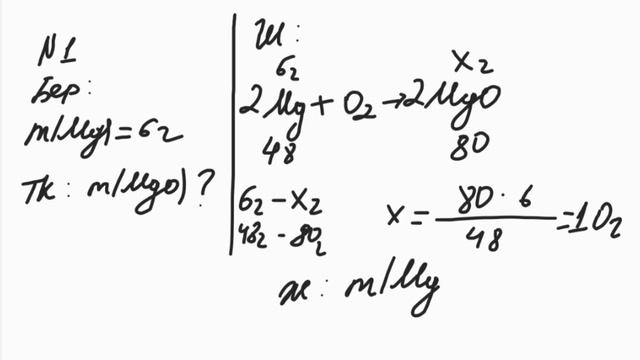 N1
Бер:
m(Mg)=6г
Тк: m(MgO)?
Ш:
6г xг
2Mg+O2→2MgO
48 80
6г-xг
48г-80г
x=80·6/48=10г
ж: m(Mg